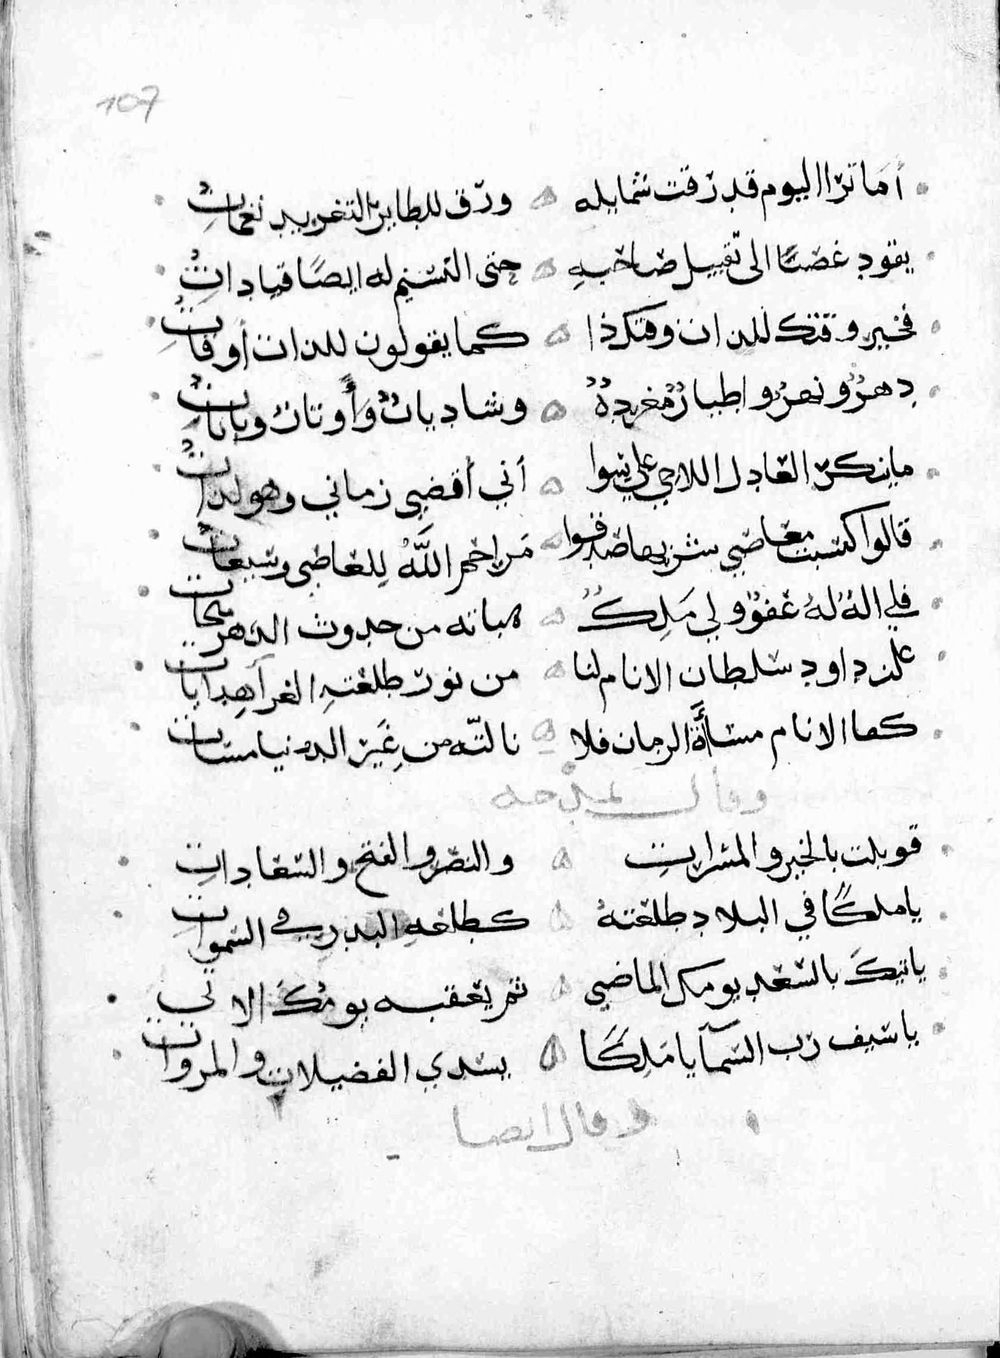 107
أما ترا اليوم قد رقت شمايله ورق للطاير التغريد نغمات
يقود غصنا الى تقبيل صاحبه حتى النسيم له ايضا قيادات
فخير وقتك للذات وقتك ذا كما يقولون للذات أوقات
دهر ونهر واطيار مغردة وشاديات وأوتار وبانات
ما ينكر العاذل اللاحي علي سوا أني أقضي زماني وهو لذات
قالوا كتبت معاصي شربها صدقوا من احمر الله للعاصي وتبيعات
فلي اله له عفو ولي ملك هباته من حدوث الدهر
داود سلطان الانام لنا من نور طلعته الغرآ هدايات
كما الانام مسأة الزمان فلا نالته من غير الدنيا مسات
وقال يمدحه
قوبلت بالخير والمسرات والنصر والفتح والسعادات
يا ملكا في البلاد طلعته كطلعة البدر في السموات
ياتيك بالسعد يومك الماضي ثم يعقبه يومك الاتي
يا سيف رب السمآ يا ملكا يسدي الفضيلات والمروات
وقال ايضا